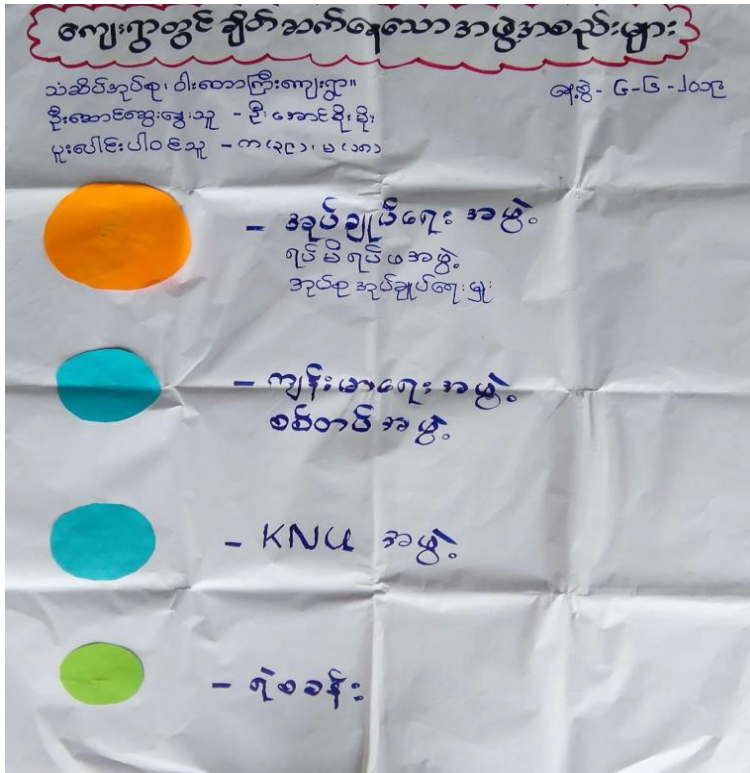 ကျေးရွာတွင် ချိတ်ဆက်နေသော အဖွဲ့အစည်းများ
သံဆိပ်အုပ်စု၊ ဝါးတောကြီးကျေးရွာ။
နေ့စွဲ - ၄-၆-၂၀၁၉
ဦးဆောင်ဆွေးနွေးသူ - ဦးအောင်စိုးစိုး
ပူးပေါင်းပါဝင်သူ - က(၃၉)၊ မ(၁၈)
- အုပ်ချုပ်ရေး အဖွဲ့
ရပ်မိရပ်ဖအဖွဲ့
အုပ်စုအုပ်ချုပ်ရေးမှူး
- ကျန်းမာရေး အဖွဲ့
စစ်တပ် အဖွဲ့
- KNU အဖွဲ့
- ရဲစခန်း